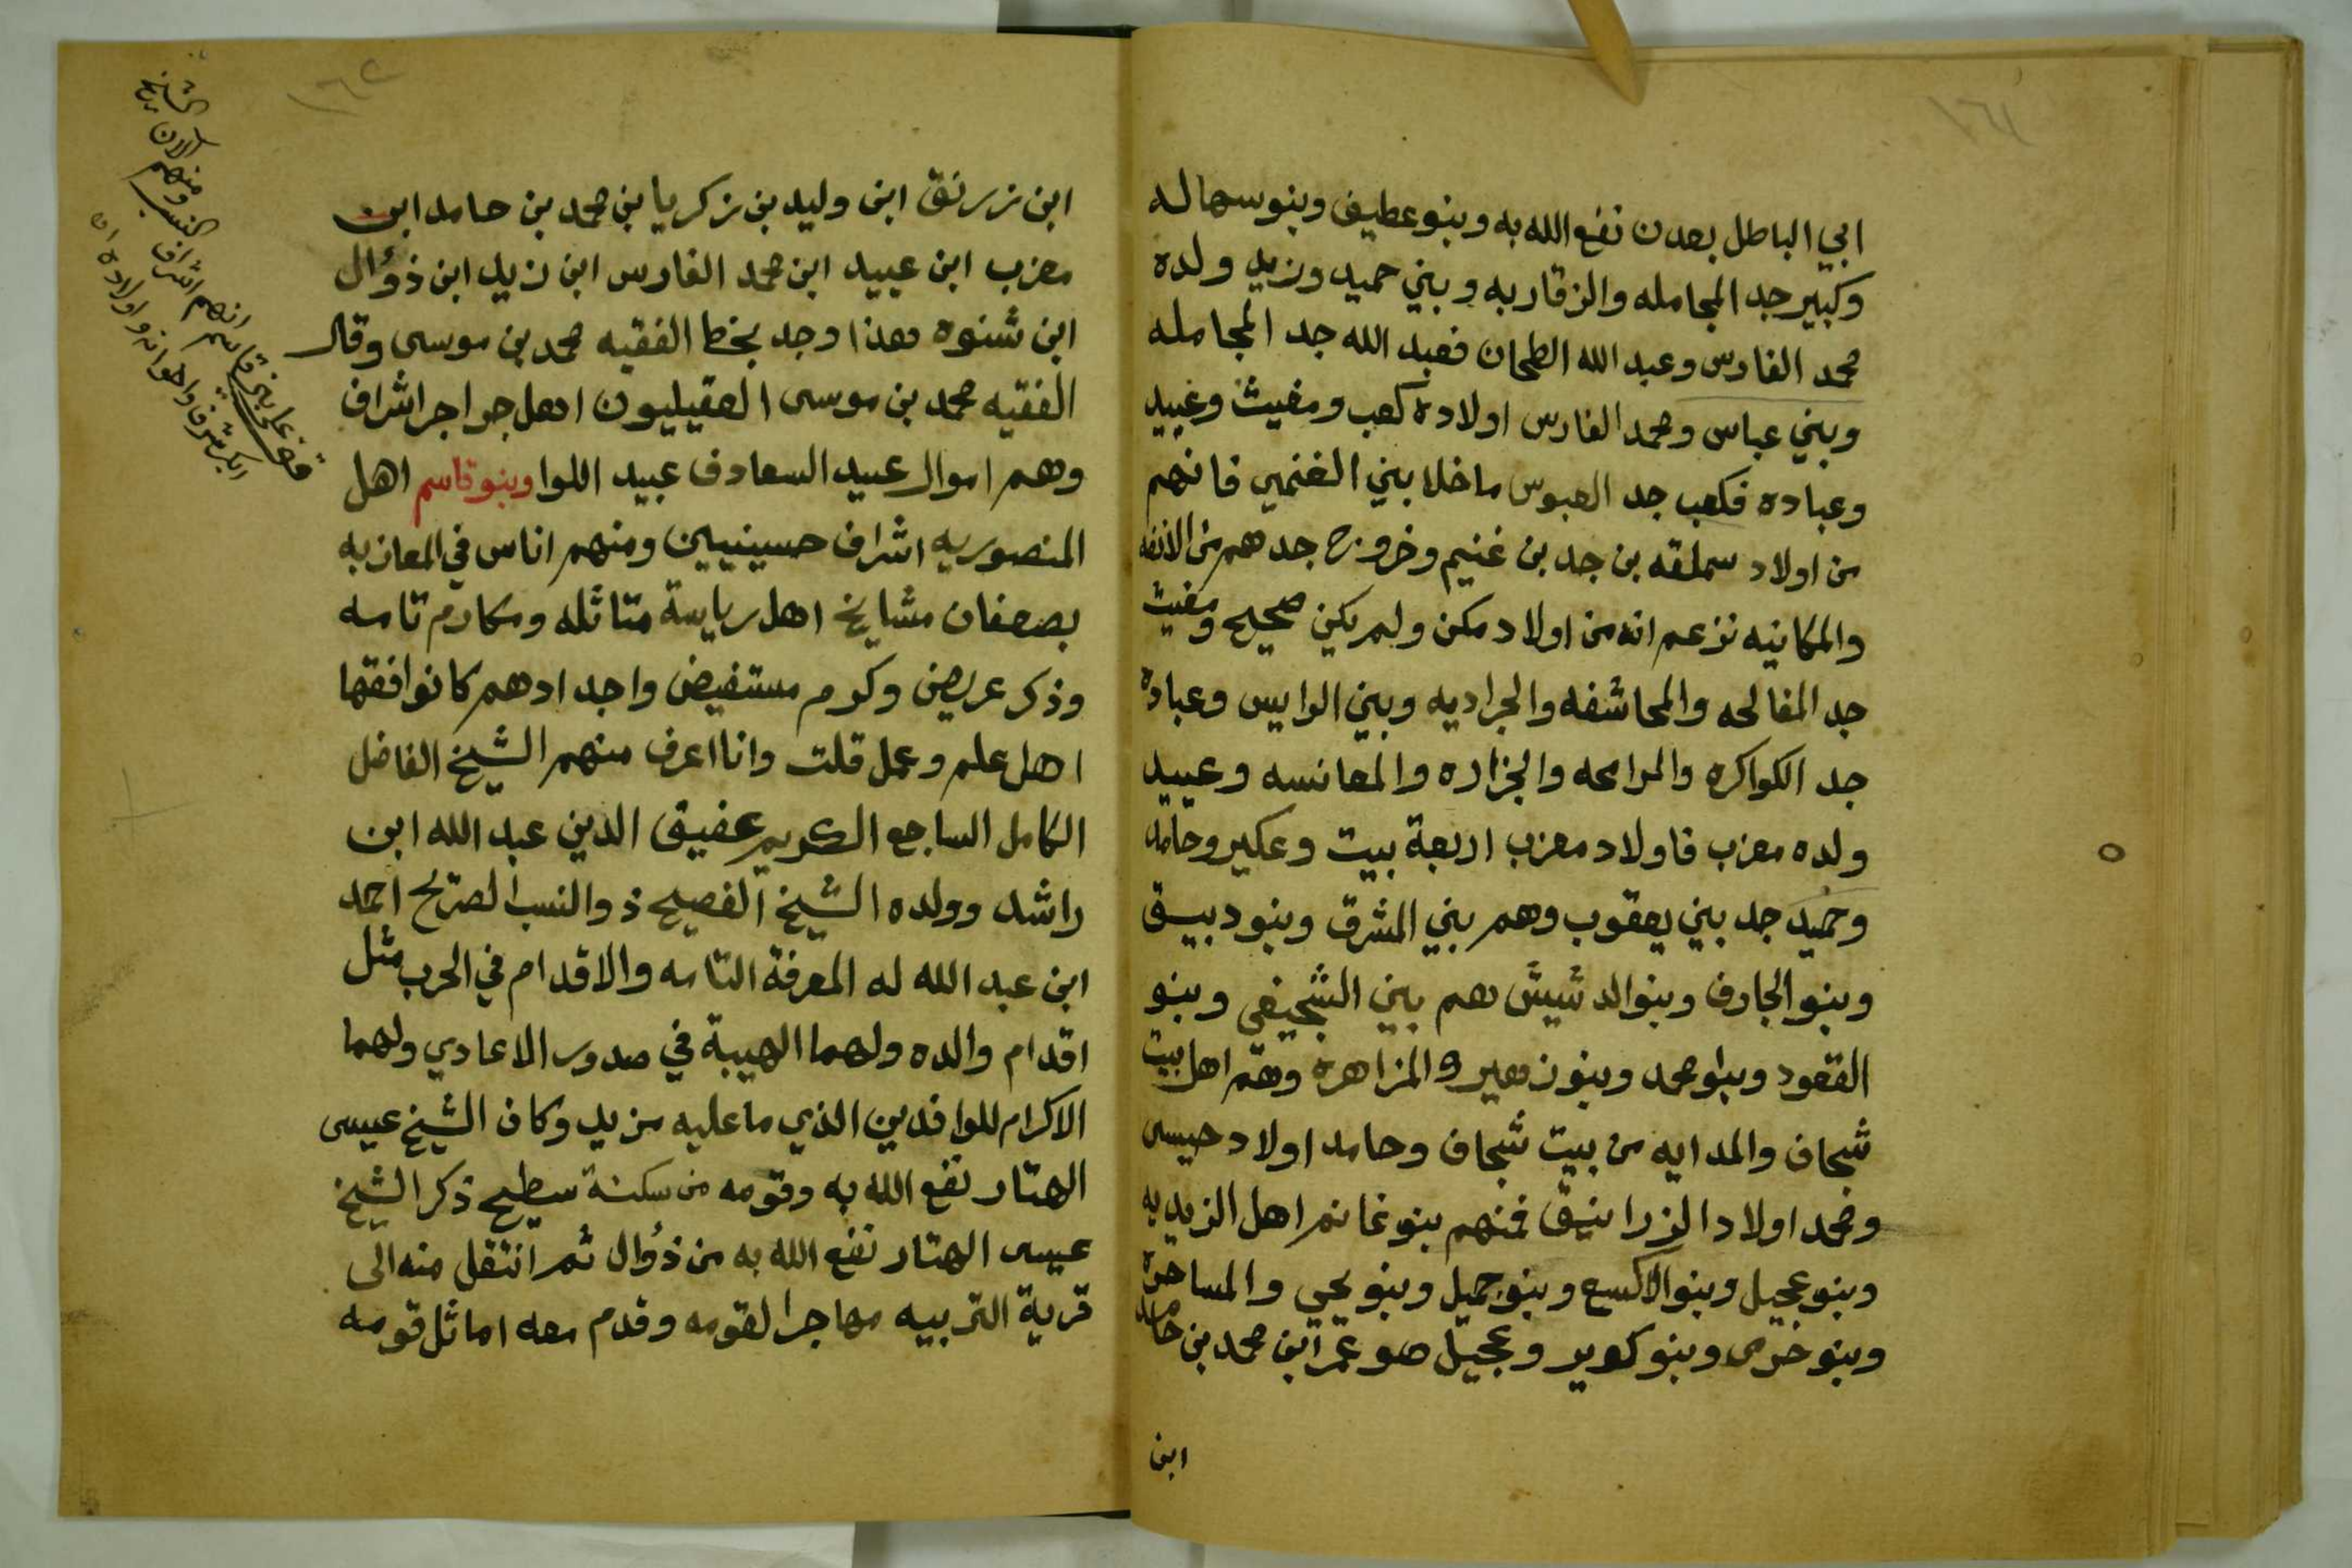 ابي الباطل بعدن نفع الله به وبنو عطيف وبنو سهاله
وكبير جد المجامله والزقاربه وبني حميد وزيد ولده
محمد الفارس وعبد الله الطحان فعبد الله جد المجامله
وبني عباس ومحمد الفارس اولاده كعب ومغيث وعبيد
وعباده فكعب جد العبوس ماخلا بني الغنمي فانهم
من اولاد سملقه بن جد بن غنيم وخروج جدهم من الانفه
والمكانيه تزعم انه من اولاد مكن ولم يكن صحيح ومغيث
جد المفالحه والمحاشفه والجراديه وبني الوايس وعباده
جد الكواكره والمرامحه والجزاره والمعانسه وعبيد
ولده معزب فاولاد معزب اربعة بيت وعكير وحامد
وحميد جد بني يعقوب وهم بني المشرق وبنو دبيق
وبنو الجارف وبنو الدشيش هم بني الشجيفي وبنو
القعود وبنو محمد وبنو زهير والمزاهره وهم اهل بيت
شجاف والمدايه من بيت شجاف وحامد اولاد حيسى
ومحمد اولاد الزرانيق فمنهم بنو غانم اهل الزيديه
وبنو عجيل وبنو الاكسع وبنو جميل وبنو يحيى والمساحره
وبنو خرمى وبنو كوير وعجيل هو عمر ابن محمد بن حامد
ابن
ابن زرنق ابن وليد بن زكريا بن محمد بن حامد ابن
معزب ابن عبيد ابن محمد الفارس ابن زيد ابن ذؤال
ابن شنوه هذا وجد بخط الفقيه محمد بن موسى وقال
الفقيه محمد بن موسى العقيليون اهل جراجر اشراف
وهم اموال عبيد السعادف عبيد اللوا وبنو قاسم اهل
المنصوريه اشراف حسينيين ومنهم اناس في المعازبه
بصعفان مشايخ اهل رياسة متاثله ومكارم تامه
وذكر عريض وكرم مستفيض واجدادهم كانوا فقها
اهل علم وعمل قلت وانا اعرف منهم الشيخ الفاضل
الكامل الساجع الكريم عفيف الدين عبد الله ابن
راشد وولده الشيخ الفصيح ذو النسب الصريح احمد
ابن عبد الله له المعرفة التامه والاقدام في الحرب مثل
اقدام والده ولهما الهيبة في صدور الاعادي ولهما
الاكرام للوافدين الذي ما عليه مزيد وكان الشيخ عيسى
الهتار نفع الله به وقومه من سكنة سطيح ذكر الشيخ
عيسى الهتار نفع الله به من ذؤال ثم انتقل منه الى
قرية التربيه مهاجرا لقومه وقدم معه اماثل قومه
الشيخ
الان
ومنهم
النسب
انهم اشراف
بني قاسم